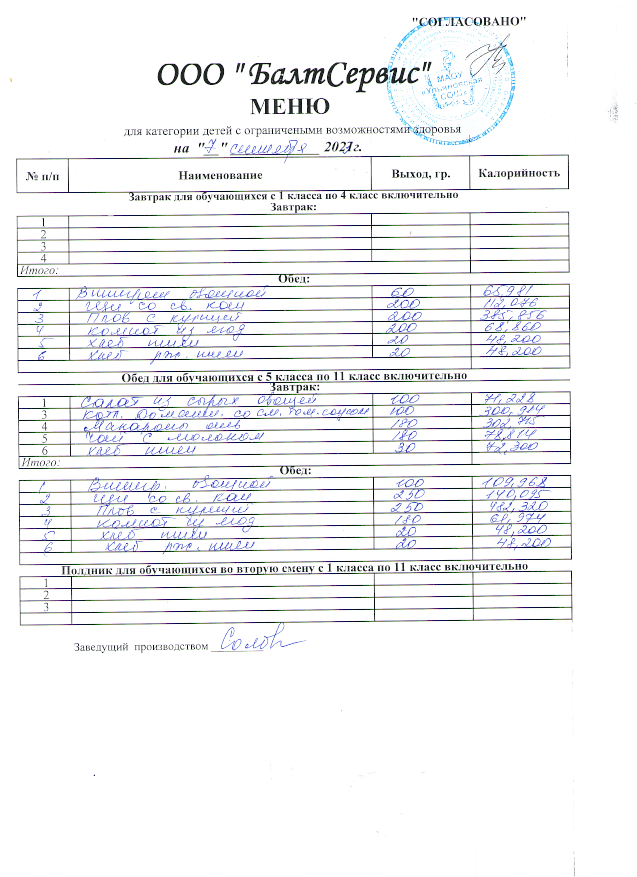 "СОГЛАСОВАНО"
ООО "БалтСервис"
МАОУ
"Ульяновская
СОШ"
МЕНЮ
для категории детей с ограничеными возможностями здоровья
на "7" сентября 2021г.
№ п/п Наименование Выход, гр. Калорийность
Завтрак для обучающихся с 1 класса по 4 класс включительно
Завтрак:
1
2
3
4
Итого:
Обед:
1 Винигрет овощной 60 65,981
2 Щи со св. кап 200 112,076
3 Плов с курицей 200 385,856
4 компот из ягод 200 68,860
5 хлеб пшен 20 48,200
6 хлеб рж. пшен 20 48,200
Обед для обучающихся с 5 класса по 11 класс включительно
Завтрак:
1 Салат из сырых овощей 100 71,228
3 Кот. Домашн. со см. том. соусом 100 300,914
4 Макароны отв 180 302,715
5 Чай с молоком 180 78,814
6 хлеб пшен 30 72,300
Итого:
Обед:
1 Винигр. овощной 100 109,968
2 Щи со св. кап 250 140,095
3 Плов с курицей 250 482,320
4 компот из ягод 180 61,974
5 хлеб пшен 20 48,200
6 хлеб рж. пшен 20 48,200
Полдник для обучающихся во вторую смену с 1 класса по 11 класс включительно
1
2
3
Заведущий производством